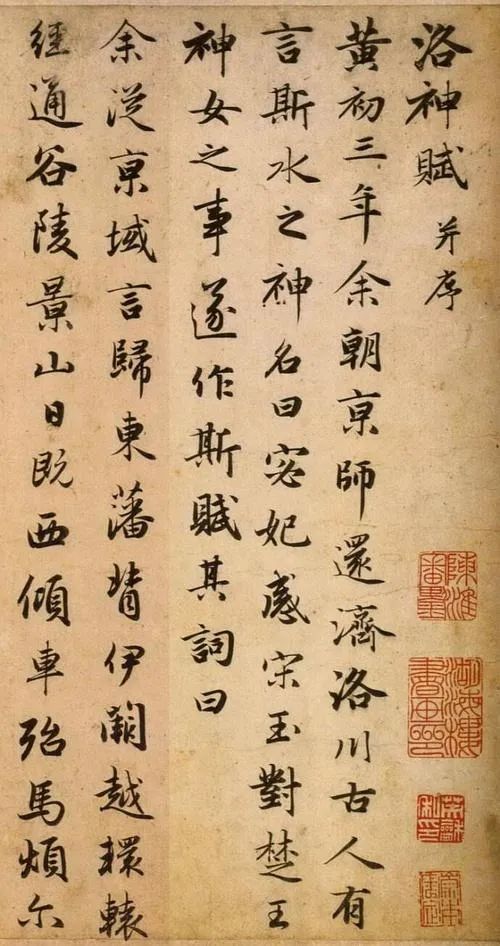 洛神賦 并序
黄初三年余朝京師還濟洛川古人有
言斯水之神名曰宓妃感宋玉對楚王
神女之事遂作斯賦其詞曰
余從京域言歸東藩背伊闕越轘轅
經通谷陵景山日既西傾車殆馬煩尔